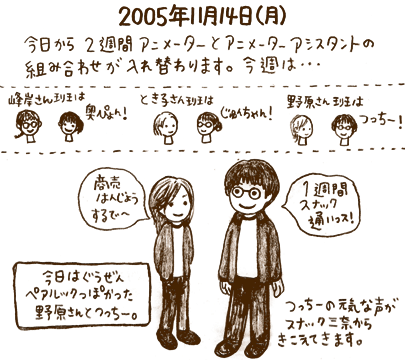 2005年11月14日(月)
今日から2週間アニメーターとアニメーターアシスタントの
組み合わせが入れ替わります。今週は・・・
峰岸さん班は
奥ぴょん!
とき子さん班は
じゅんちゃん!
野原さん班は
つっちー!
商売
はんじょう
するでへ
1週間
スナック
通いっス!
今日はぐうぜん
ペアルックっぽかった
野原さんとつっちー。
つっちーの元気な声が
スナック三奈から
きこえてきます。